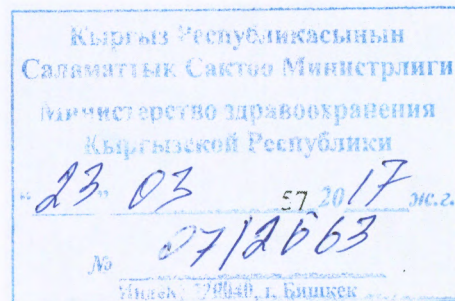 Кыргыз Республикасынын
Саламаттык Сактоо Министрлиги
Министерство здравоохранения
Кыргызской Республики
"23" 03 57 2017 ж.г.
№ 07/2663
Индекс 720040, г. Бишкек